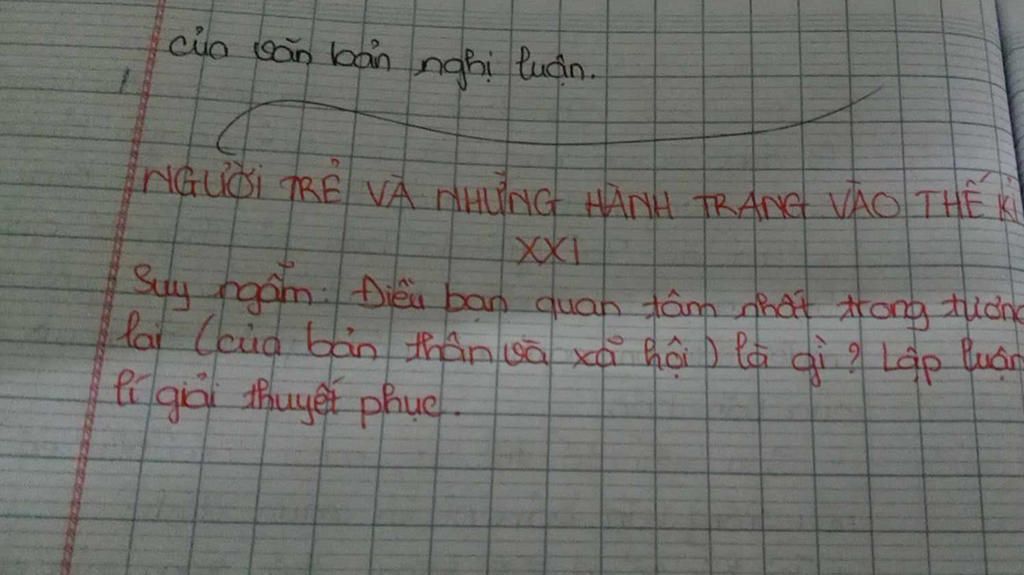 của văn bản nghị luận.
NGƯỜI TRẺ VÀ NHỮNG HÀNH TRANG VÀO THẾ KỈ
XXI
Suy ngẫm: Điều bạn quan tâm nhất trong tương
lai (của bản thân và xã hội) là gì? Lập luận
lí giải thuyết phục.